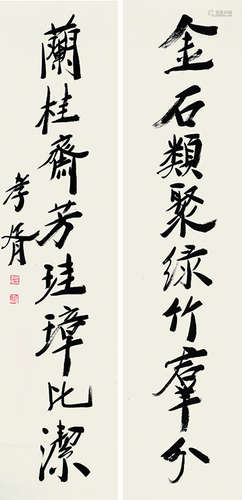 金石類聚綠竹羣分
蘭桂齋芳珪璋比潔
孝胥